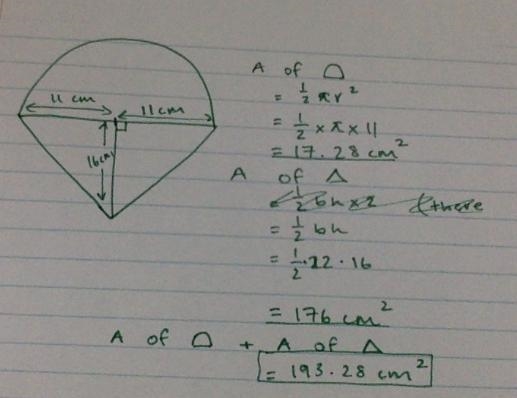 11 cm 11 cm
16cm
A of ⌓
= 1/2 πr²
= 1/2 × π × 11
= 17.28 cm²
A of Δ
= 1/2 bh×2 (there
= 1/2 bh
= 1/2 · 22 · 16
= 176 cm²
A of ⌓ + A of Δ
= 193.28 cm²